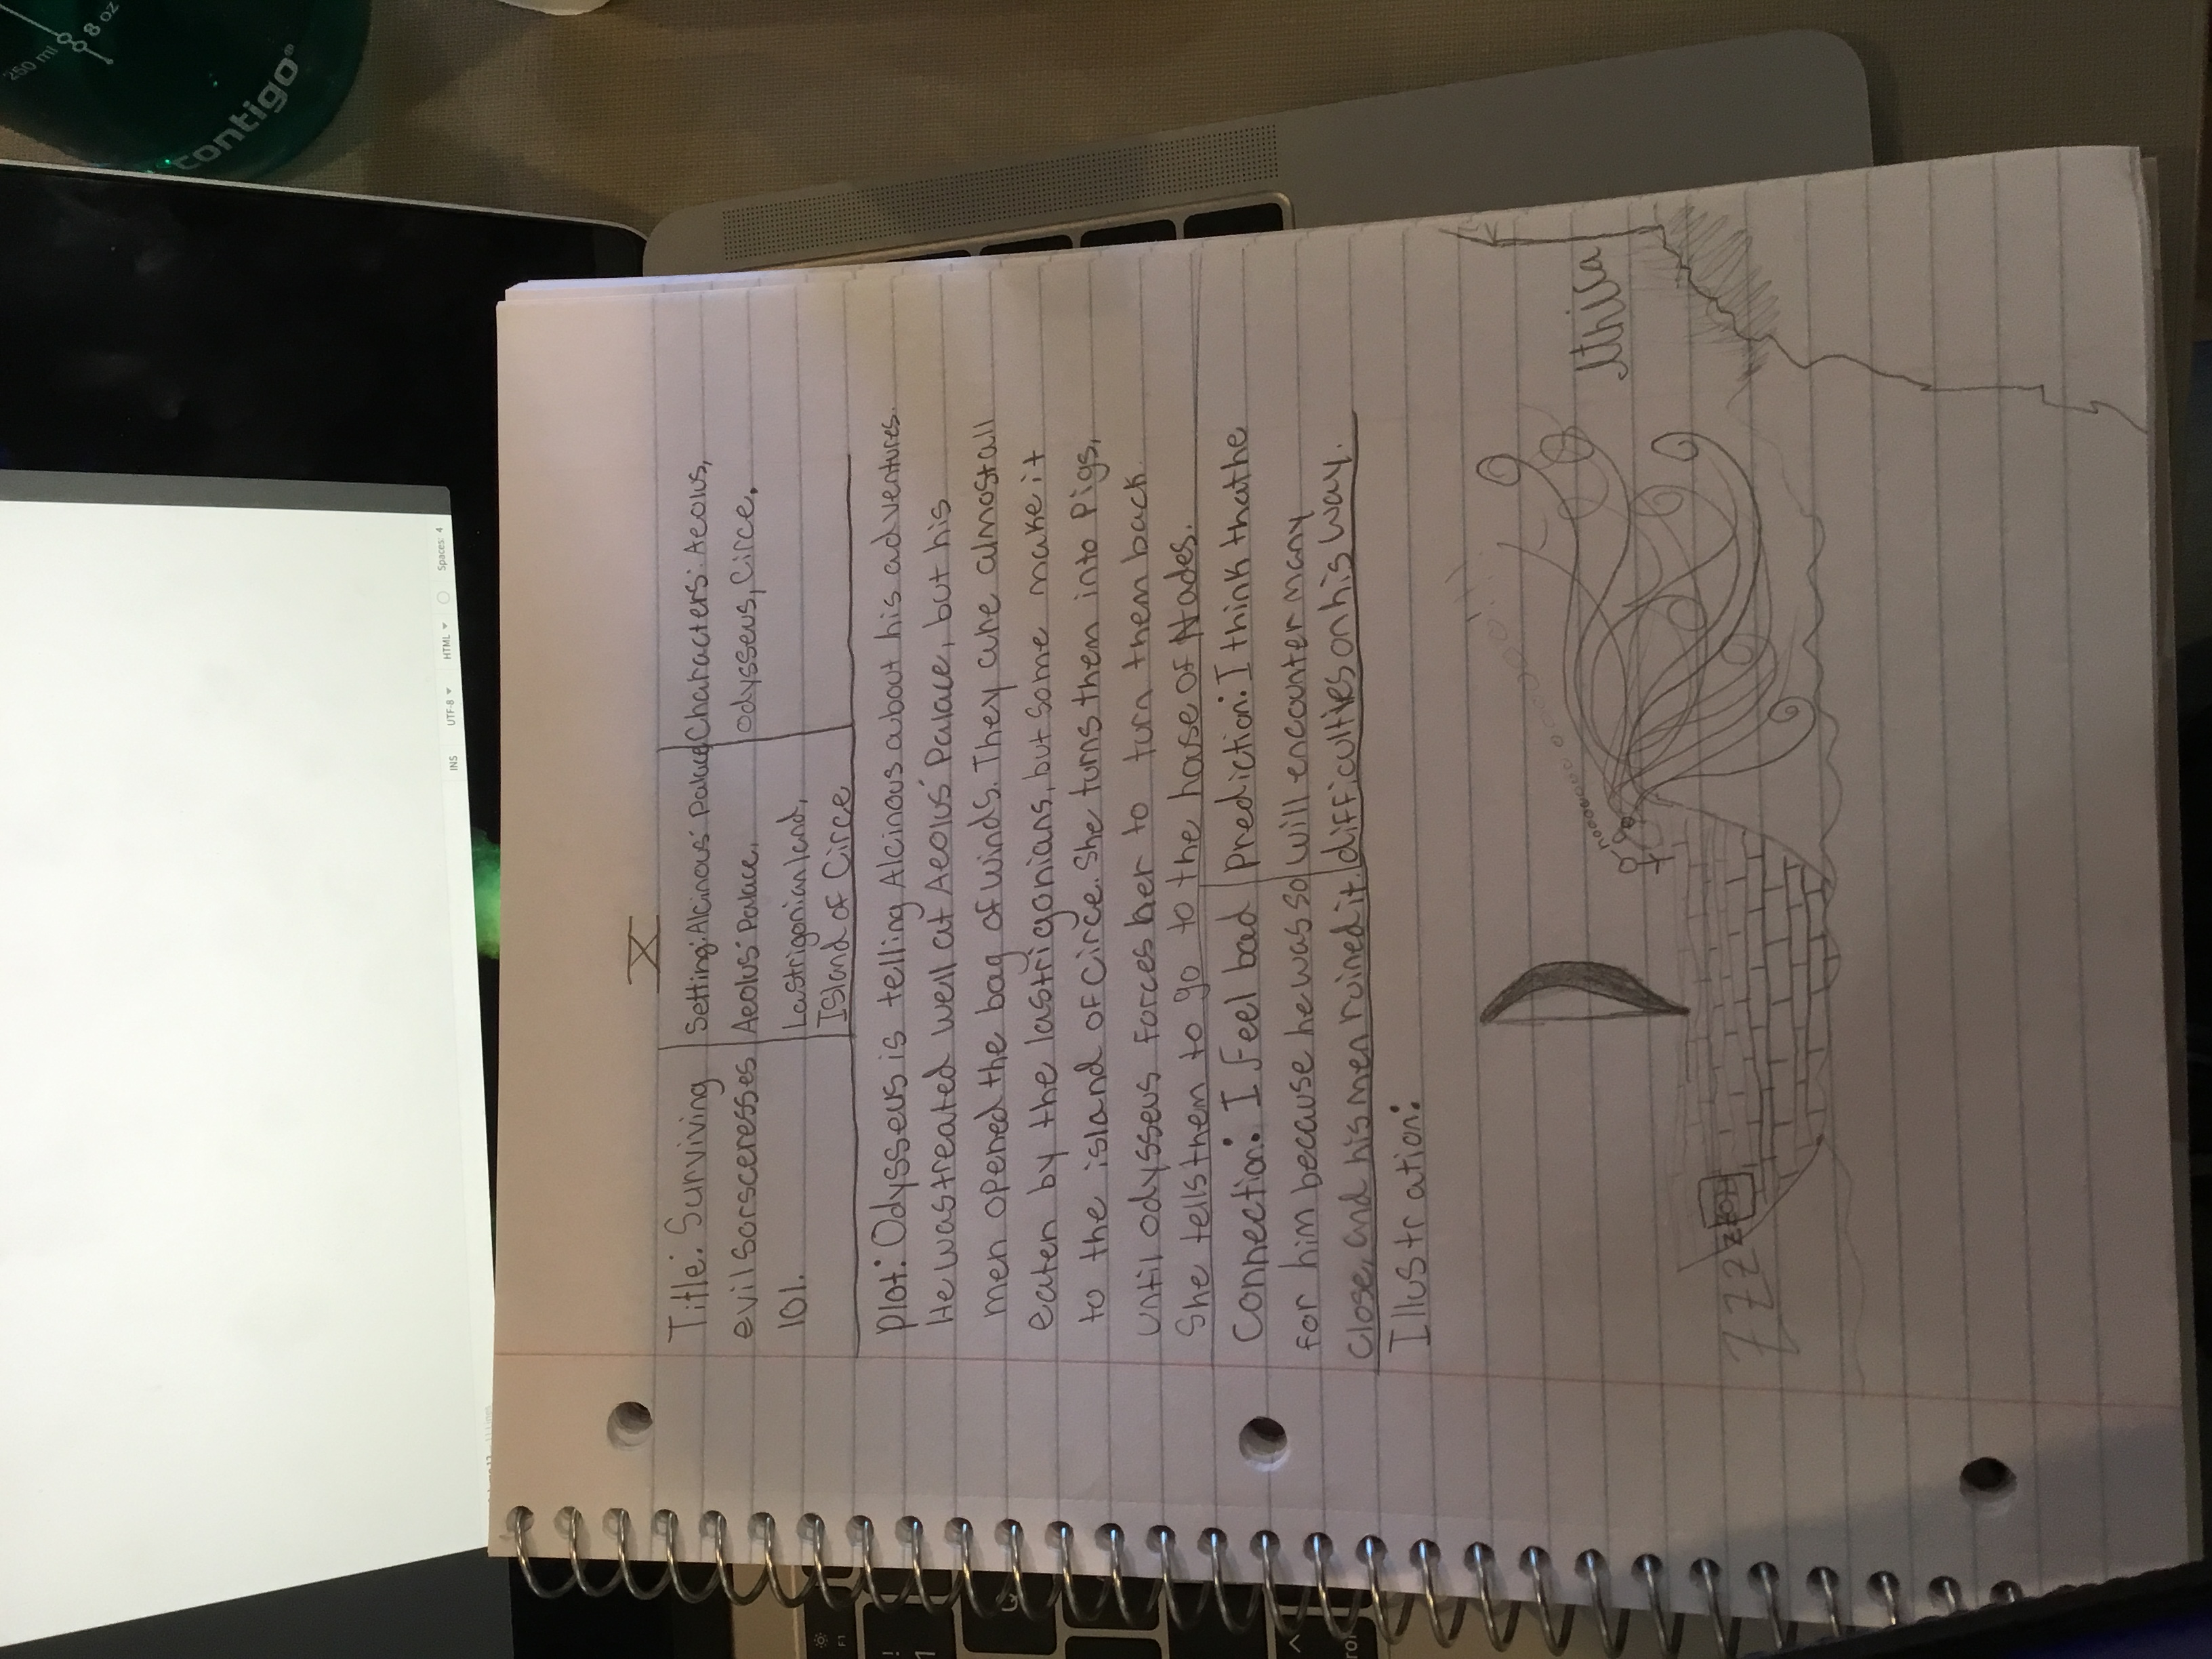 250 ml
8 oz
contigo®
INS UTF-8 HTML Spaces: 4
F1
!
1
Q
X
Title: Surviving
evil sorsceresses
101.
Setting: Alcinous' Palace
Aeolus' Palace,
Lastrigonian land,
Island of Circe
Characters: Aeolus,
Odysseus, Circe.
Plot: Odysseus is telling Alcinous about his adventures.
He was treated well at Aeolus' Palace, but his
men opened the bag of winds. They are almost all
eaten by the lastrigonians, but some make it
to the island of Circe. She turns them into Pigs,
until odysseus forces her to turn them back.
She tells them to go to the house of Hades.
Connection: I feel bad
for him because he was so
close, and his men ruined it.
Prediction: I think that he
will encounter many
difficulties on his way.
Illustration:
noooooooooooooo!!!
Ithica
ZZZzz